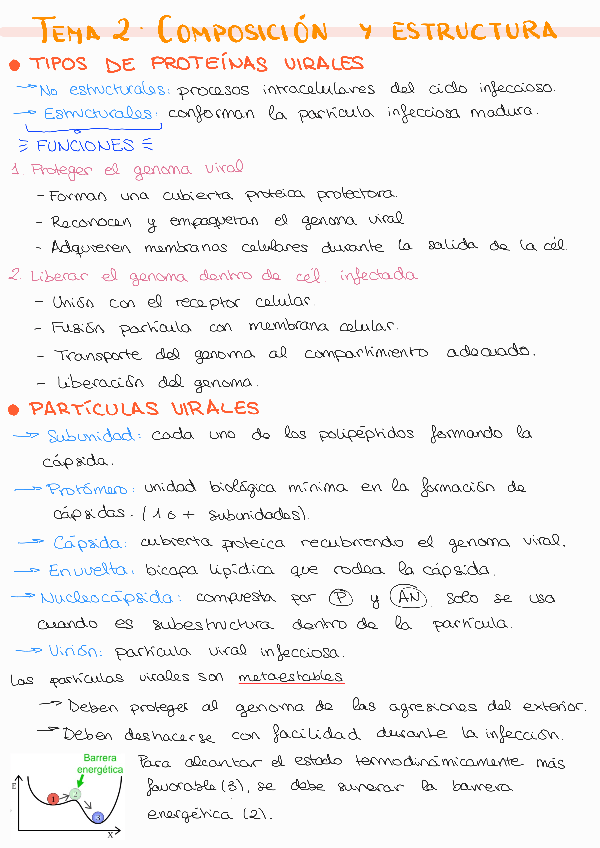 TEMA 2. COMPOSICIÓN Y ESTRUCTURA
• TIPOS DE PROTEÍNAS VIRALES
→ No estructurales: procesos intracelulares del ciclo infeccioso.
→ Estructurales: conforman la partícula infecciosa madura.
FUNCIONES
1. Proteger el genoma viral
- Forman una cubierta proteica protectora.
- Reconocen y empaquetan el genoma viral
- Adquieren membranas celulares durante la salida de la cél.
2. Liberar el genoma dentro de cél. infectada
- Unión con el receptor celular.
- Fusión partícula con membrana celular.
- Transporte del genoma al compartimiento adecuado.
- Liberación del genoma.
• PARTÍCULAS VIRALES
→ Subunidad: cada uno de los polipéptidos formando la
cápsida.
→ Protómero: unidad biológica mínima en la formación de
cápsidas. (1 o + subunidades).
→ Cápsida: cubierta proteica recubriendo el genoma viral.
→ Envuelta: bicapa lipídica que rodea la cápsida.
→ Nucleocápsida: compuesta por P y AN. Solo se usa
cuando es subestructura dentro de la partícula.
→ Virión: partícula viral infecciosa.
Las partículas virales son metaestables
→ Deben proteger al genoma de las agresiones del exterior.
→ Deben deshacerse con facilidad durante la infección.
Barrera
energética
E
1
2
3
X
Para alcanzar el estado termodinámicamente más
favorable (3), se debe superar la barrera
energética (2).